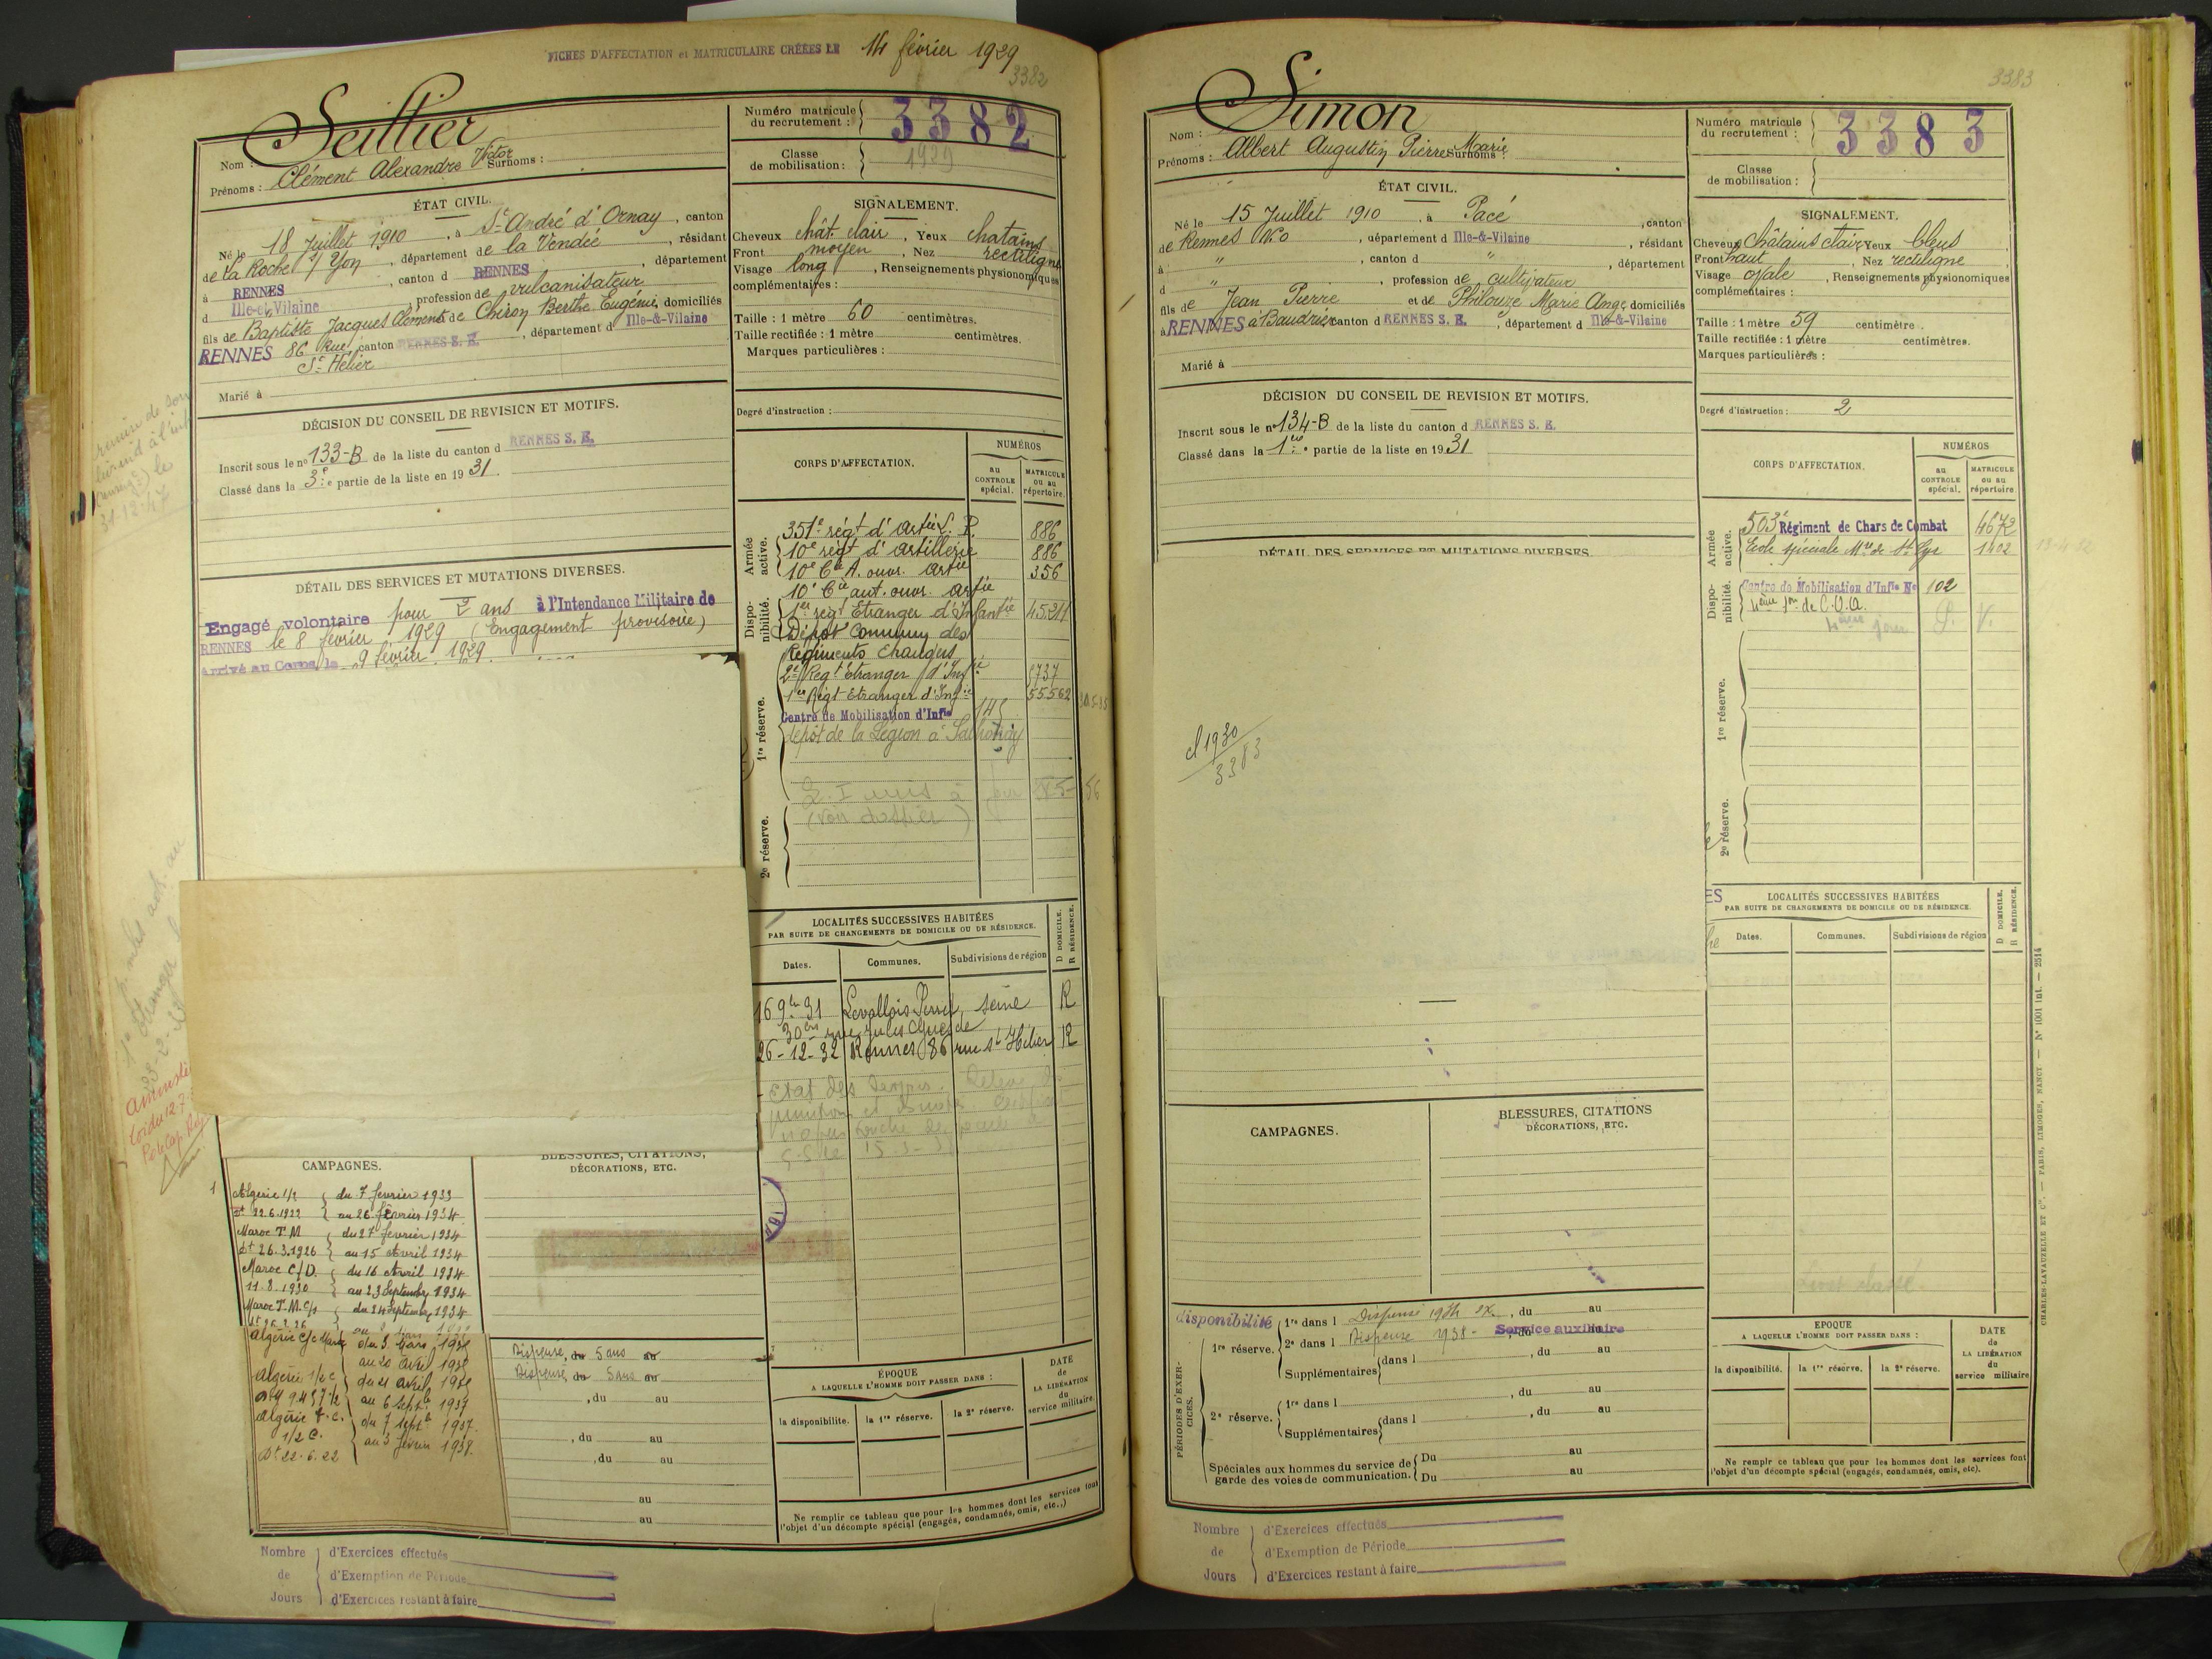 FICHES D'AFFECTATION et MATRICULAIRE CRÉÉES LE 14 février 1929
3382
Nom : Seillier
Prénoms : Clément Alexandre Victor Surnoms :
Numéro matricule du recrutement : 3382
Classe de mobilisation : 1929
ÉTAT CIVIL.
Né le 18 Juillet 1910, à St André d'Ornay, canton
de La Roche s/ Yon, département de la Vendée, résidant
à RENNES, canton d RENNES, département
d Ille-et-Vilaine, profession de vulcanisateur
fils de Baptiste Jacques Clément et de Chiron Berthe Eugénie, domiciliés
RENNES 86 Rue canton RENNES S. E., département d Ille-&-Vilaine
St Hélier
Marié à
SIGNALEMENT.
Cheveux chât clair, Yeux chatains
Front moyen, Nez rectiligne
Visage long, Renseignements physionomiques
complémentaires :
Taille : 1 mètre 60 centimètres.
Taille rectifiée : 1 mètre centimètres.
Marques particulières :
DÉCISION DU CONSEIL DE REVISION ET MOTIFS.
Inscrit sous le n° 133-B de la liste du canton d RENNES S. E.
Classé dans la 3e partie de la liste en 1931.
Degré d'instruction :
DÉTAIL DES SERVICES ET MUTATIONS DIVERSES.
Engagé volontaire pour 2 ans à l'Intendance Militaire de
RENNES le 8 février 1929 (Engagement provisoire)
Arrivé au Corps le 9 février 1929
CORPS D'AFFECTATION.
NUMÉROS
au CONTROLE spécial.
MATRICULE ou au répertoire.
Armée active.
351e régt d'artie L. P. 886
10e régt d'artillerie 886
10e Cie A. ouvr. artie 356
10e Cie aut. ouvr. artie
Disponibilité.
1er régt Etranger d'Infantie 45.211
Dépôt Commun des
Régiments Etrangers
2e Régt Etranger d'Infie 6737
1er Régt Etranger d'Infie 55562
1re réserve.
Centre de Mobilisation d'Infie 145
dépôt de la Légion à Sathonay
(voir dossier)
2e réserve.
LOCALITÉS SUCCESSIVES HABITÉES
PAR SUITE DE CHANGEMENTS DE DOMICILE OU DE RÉSIDENCE.
D DOMICILE.
R RÉSIDENCE.
Dates. Communes. Subdivisions de région
16 9bre 31 Levallois Perret Seine R
30 bis rue Jules Guesde
26-12-32 Rennes 86 rue St Hélier R
CAMPAGNES.
BLESSURES, CITATIONS,
DÉCORATIONS, ETC.
Algérie 1/2 du 7 février 1933
Dt 22.6.1922 au 26 février 1934
Maroc T.M du 27 février 1934
Dt 26.3.1926 au 15 Avril 1934
Maroc C/D. du 16 Avril 1934
11.8.1930 au 23 Septembre 1934
Maroc T.M. du 24 Septembre 1934
Algérie
Algérie 1/2 c
au 6 septbre 1937
Algérie du 7 septbre 1937
1/2 C. au 3 février 1938
Dt 22.6.22
Dispensé, du 5 ans au
Dispensé, du 5 ans au
, du au
, du au
, du au
au
au
ÉPOQUE
A LAQUELLE L'HOMME DOIT PASSER DANS :
la disponibilité. la 1re réserve. la 2e réserve.
DATE de LA LIBÉRATION du service militaire.
Ne remplir ce tableau que pour les hommes dont les services font
l'objet d'un décompte spécial (engagés, condamnés, omis, etc..)
Nombre de Jours
d'Exercices effectués
d'Exemption de Période
d'Exercices restant à faire
3383
Nom : Simon
Prénoms : Albert Augustin Pierre Marie Surnoms :
Numéro matricule du recrutement : 3383
Classe de mobilisation :
ÉTAT CIVIL.
Né le 15 Juillet 1910, à Pacé, canton
de Rennes No, département d Ille-&-Vilaine, résidant
à ", canton d ", département
d ", profession de cultivateur
fils de Jean Pierre et de Philouze Marie Ange domiciliés
à RENNES canton d RENNES S. E., département d Ille-&-Vilaine
Marié à
SIGNALEMENT.
Cheveux Châtains clairs Yeux bleus
Front haut, Nez rectiligne
Visage ovale, Renseignements physionomiques
complémentaires :
Taille : 1 mètre 59 centimètre.
Taille rectifiée : 1 mètre centimètres.
Marques particulières :
DÉCISION DU CONSEIL DE REVISION ET MOTIFS.
Inscrit sous le n° 134-B de la liste du canton d RENNES S. E.
Classé dans la 1ere partie de la liste en 1931
Degré d'instruction : 2
DÉTAIL DES SERVICES ET MUTATIONS DIVERSES.
cl 1930
3383
CORPS D'AFFECTATION.
NUMÉROS
au CONTROLE spécial.
MATRICULE ou au répertoire
Armée active.
503e Régiment de Chars de Combat 4672
Ecole spéciale Mre de St Cyr 1402
Disponibilité.
Centre de Mobilisation d'Infie No 102
1re réserve.
2e réserve.
LOCALITÉS SUCCESSIVES HABITÉES
PAR SUITE DE CHANGEMENTS DE DOMICILE OU DE RÉSIDENCE.
D DOMICILE.
R RÉSIDENCE.
Dates. Communes. Subdivisions de région
CAMPAGNES.
BLESSURES, CITATIONS
DÉCORATIONS, ETC.
disponibilité
PÉRIODES D'EXERCICES.
1re réserve.
1re dans l Dispensé, du au
2e dans l Dispense 1938 - Service auxiliaire
Supplémentaires dans l , du au
2e réserve.
1re dans l , du au
Supplémentaires dans l , du au
Spéciales aux hommes du service de garde des voies de communication.
Du au
Du au
EPOQUE
A LAQUELLE L'HOMME DOIT PASSER DANS :
la disponibilité. la 1re réserve. la 2e réserve.
DATE de LA LIBÉRATION du service militaire
Ne remplr ce tableau que pour les hommes dont les services font
l'objet d'un décompte spécial (engagés, condamnés, omis, etc).
CHARLES-LAVAUZELLE ET Cie. — PARIS, LIMOGES, NANCY — N° 1001 Int. — 2514
Nombre de Jours
d'Exercices effectués
d'Exemption de Période
d'Exercices restant à faire